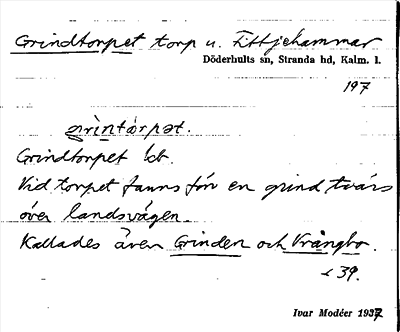 Grindtorpet torp u. Fittjehammar
Döderhults sn, Stranda hd, Kalm. l.
197
grìntårpət.
Grindtorpet kb.
Vid torpet fanns förr en grind tvärs
över landsvägen.
Kallades även Grinden och Vrångbo.
39.
Ivar Modéer 1937